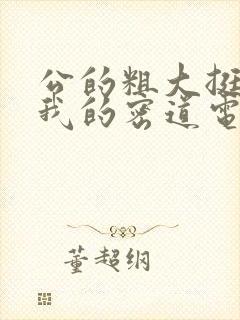 公的粗大挺
我的密道电
董超纲